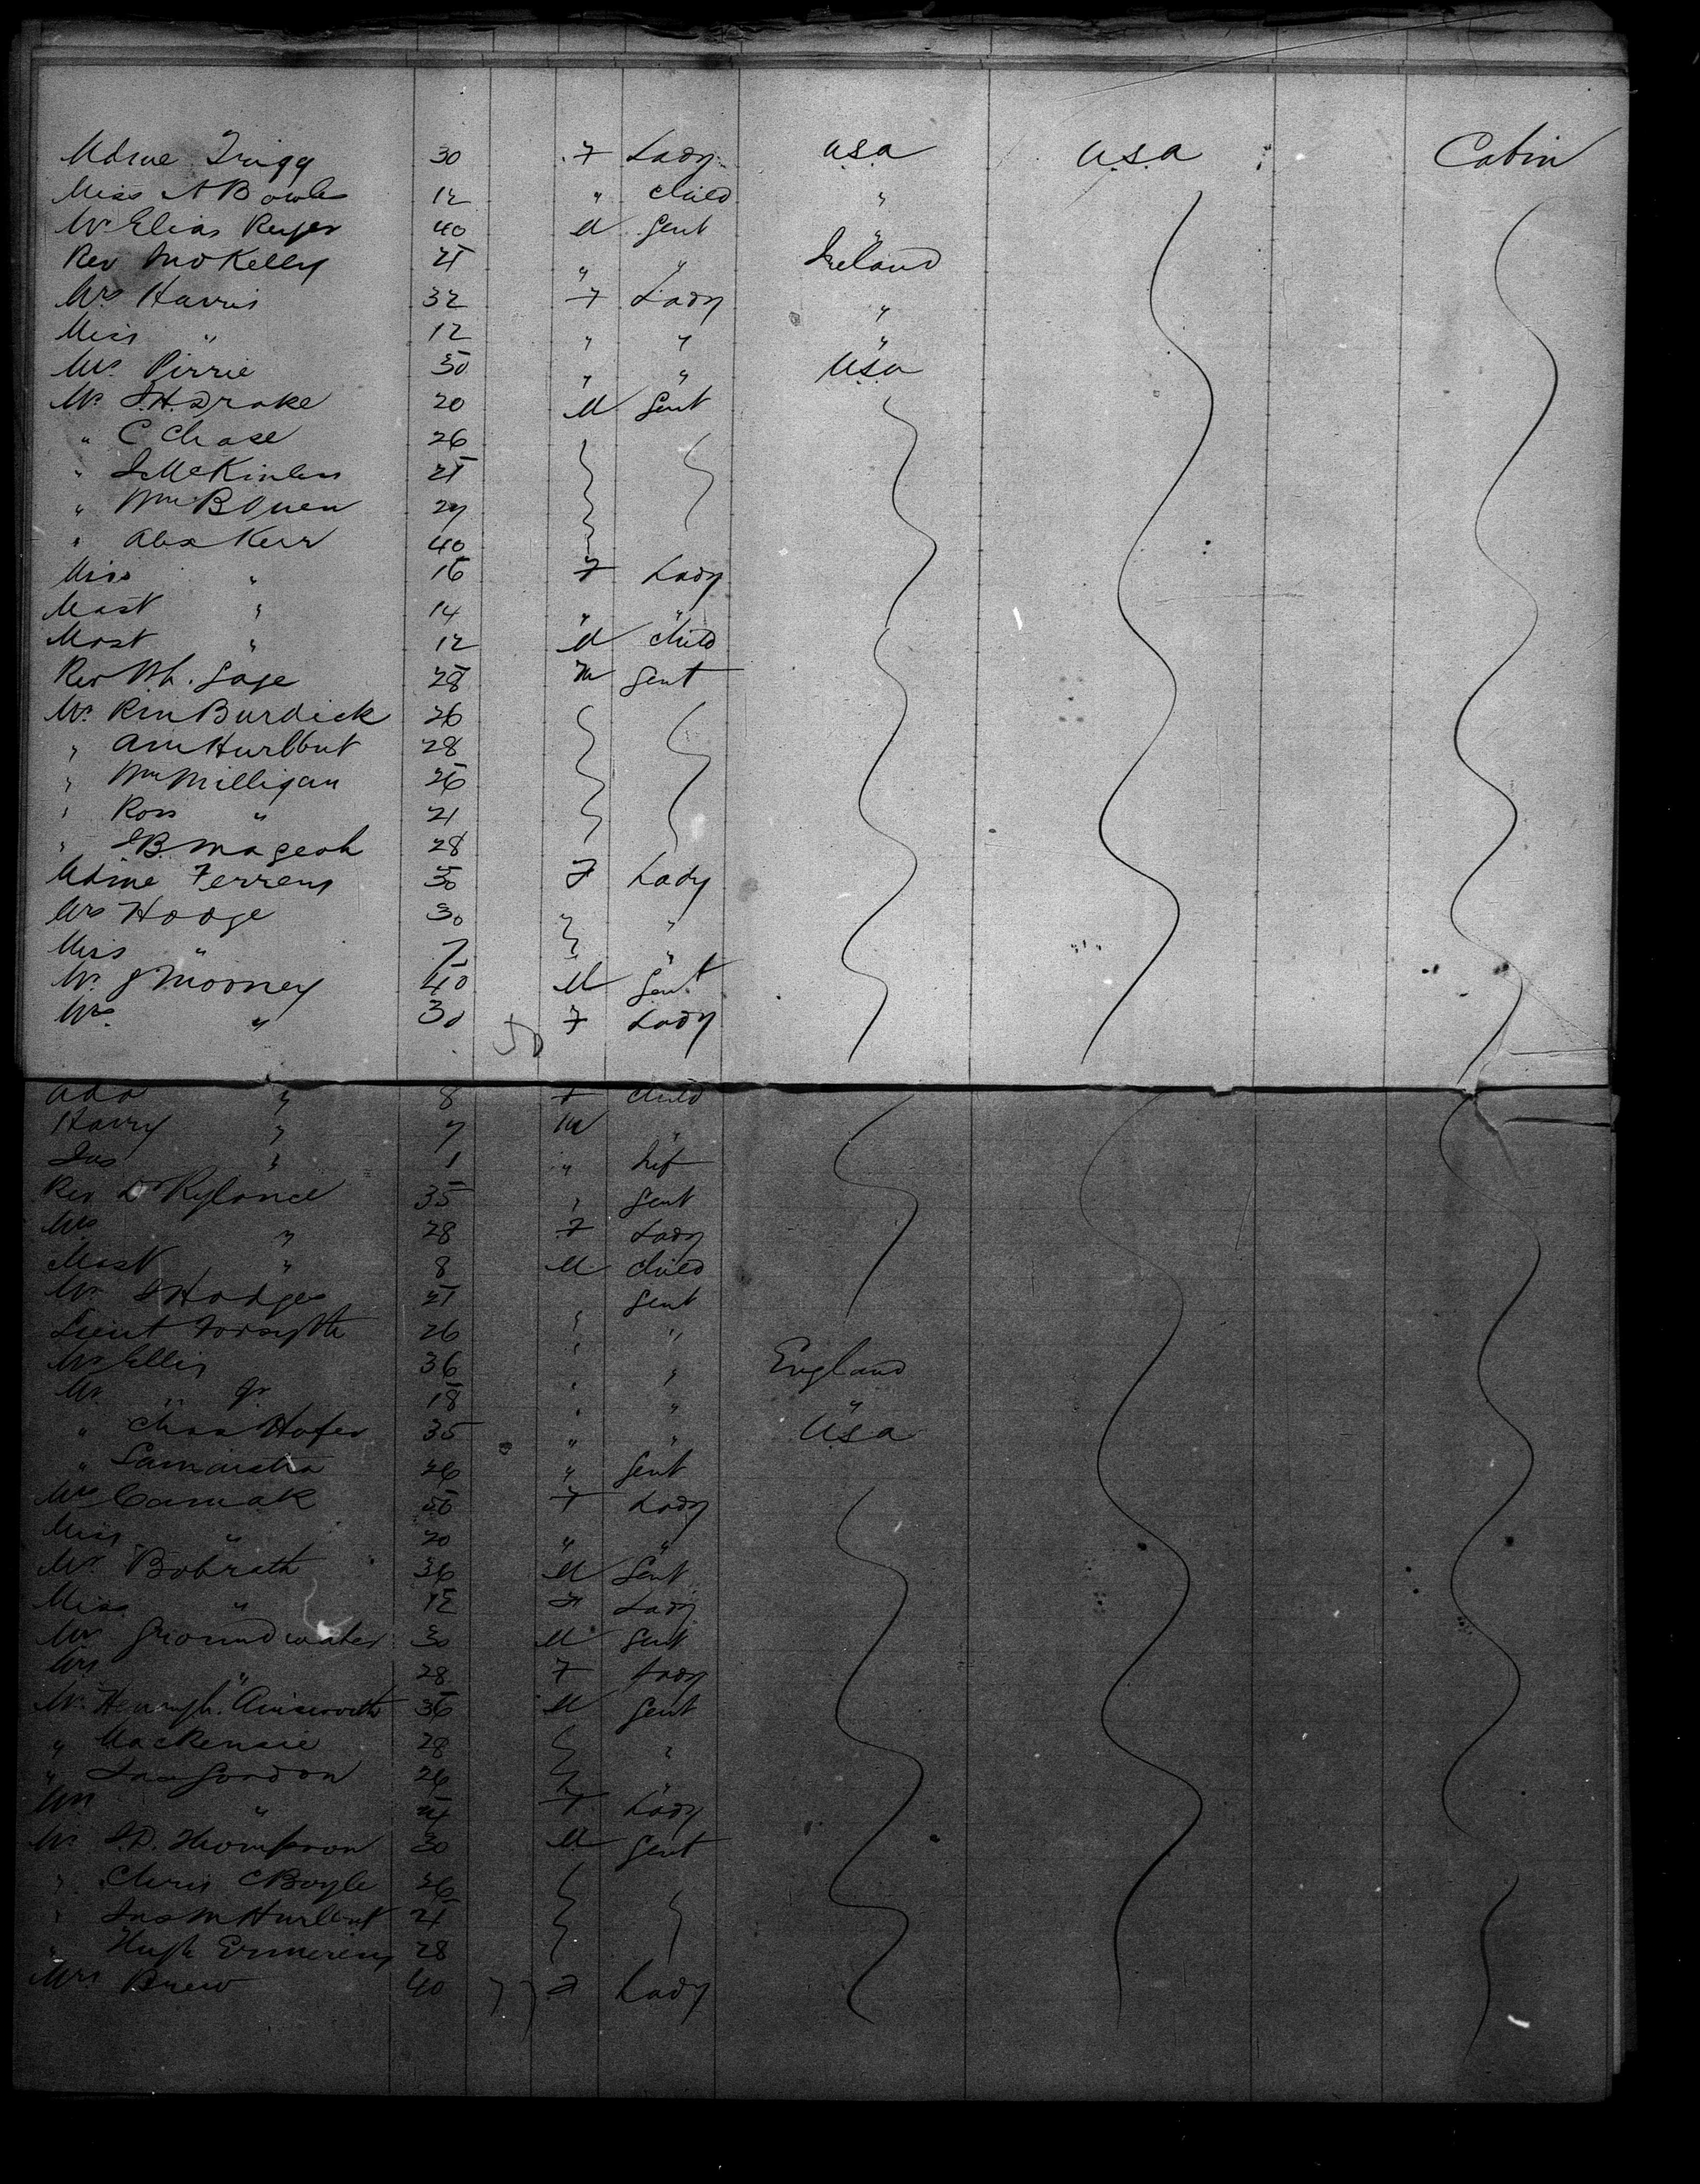 Mdme Trigg 30 F Lady U.S.A U.S.A Cabin
Miss A Bowles 12 " child "
Mr Elias 40 M Gent "
Rev Jno Kelly 25 " " Ireland
Mrs Harris 32 F Lady "
Miss " 12 " " "
Mrs Pirrie 30 " " U.S.A
Mr J.H. Drake 20 M Gent
" C Chase 26
" J McKinless 25
" Wm B Owen 27
" Alex Kerr 40
Miss " 16 F Lady
Mast " 14 " "
Mast " 12 M child
Rev Wh. Gage 28 M Gent
Mr Burdick 26
" Hurlbut 28
" Wm Milligan 26
" Ross " 21
" J B Mageoh 28
Mdme Ferrens 30 F Lady
Mrs Hodge 30 "
Miss " 7 "
Mr J Mooney 40 M Gent
Mrs " 30 50 F Lady
Ada " 8 F child
Harry " 7 M "
Jno " 1 " Inf
Rev Dr Rylance 35 " Gent
Mrs " 28 F Lady
Mast " 8 M child
Mr J Hodges 25 Gent
Lieut Forsyth 26 " "
Mr Ellis 36 " " England
Mr " Jr 18 " " "
" Chas Hofer 35 " " U.S.A
" 26 " Gent
Mrs Camak 50 F Lady
Miss " 20 " "
Mr Bobrath 36 M Gent
Miss " 12 F Lady
Mr Groundwater 30 M Gent
Mrs " 28 F Lady
Mr Ainsworth 36 M Gent
" Mackensie 28 "
" Jas Gordon 26 "
Mrs " F Lady
Mr J.D. Thompson 30 M Gent
" Chris C Boyle 26
" Jno M Hurlbut 25
" Hugh 28
Mrs Brew 40 77 F Lady